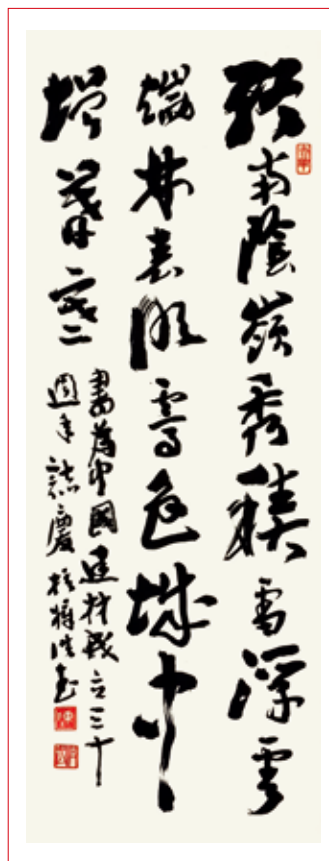 終南陰嶺秀積雪浮雲
端林表明霽色城中
增暮寒
書為中國建材成立三十
週年誌慶